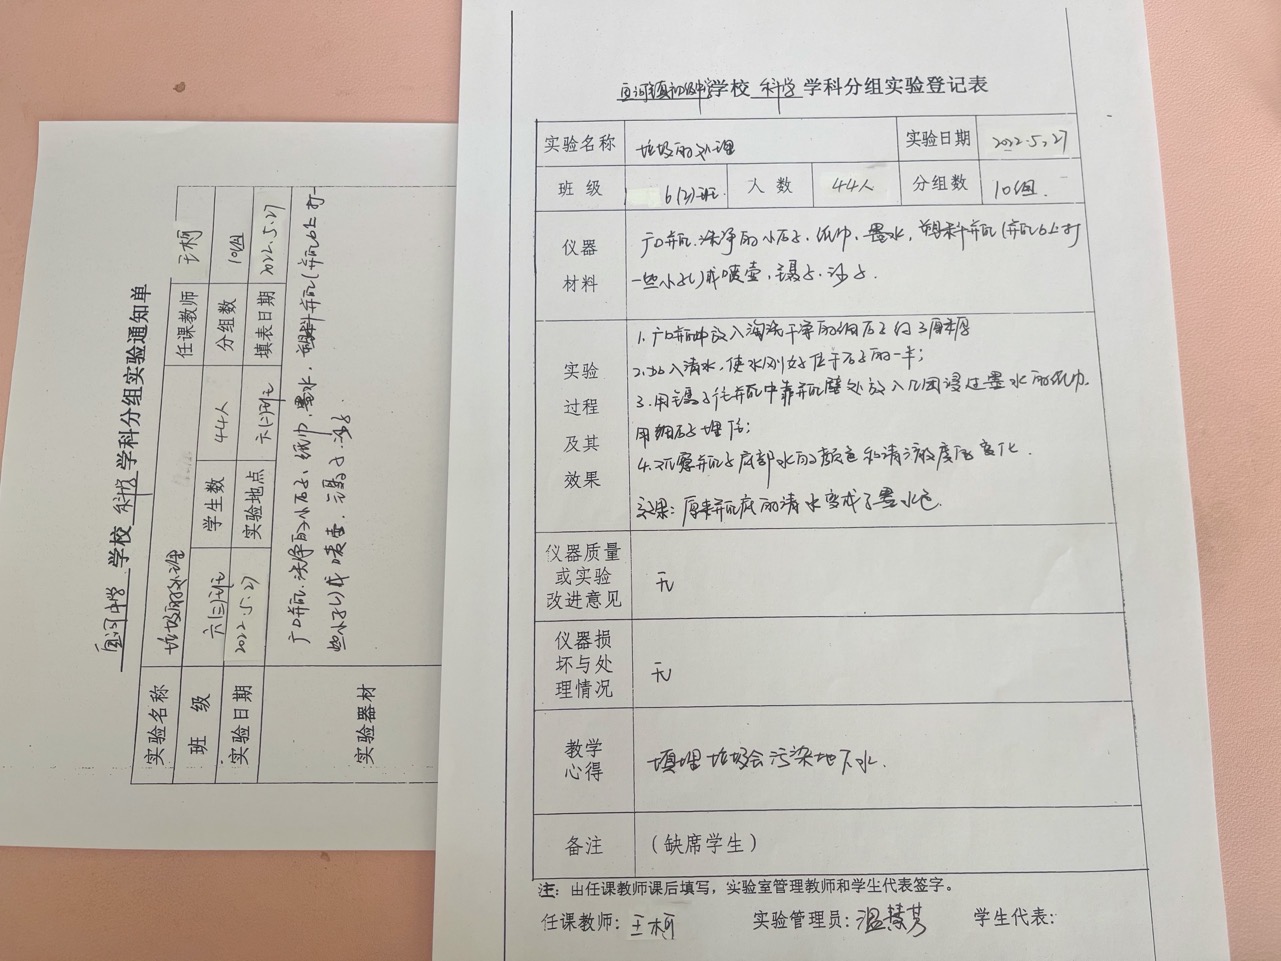 学校 科学 学科分组实验通知单
实验名称 垃圾的处理 任课教师 王柯
班 级 六(二)班 学生数 44人 分组数 10组
实验日期 2022.5.27 实验地点 六(二)班 填表日期 2022.5.27
实验器材 广口瓶、洗净的小石子、纸巾、墨水、塑料瓶(瓶口上打
一些小孔)或喷壶、镊子、沙子
初级中学学校 科学 学科分组实验登记表
实验名称 垃圾的处理 实验日期 2022.5.27
班 级 6(2)班 人 数 44人 分组数 10组.
仪器材料 广口瓶、洗净的小石子、纸巾、墨水,塑料瓶(瓶口上打
一些小孔)或喷壶、镊子、沙子.
实验过程及其效果 1.广口瓶中放入淘洗干净的细石子约
2.加入清水,使水刚好位于石子的一半;
3.用镊子往瓶中靠瓶壁处放入几团浸过墨水的纸巾.
用细石子埋住;
4.观察瓶子底部水的颜色和清澈度变化.
效果:原来瓶底的清水变成了墨水色.
仪器质量或实验改进意见 无
仪器损坏与处理情况 无
教学心得 填埋垃圾会污染地下水.
备注 (缺席学生)
注:由任课教师课后填写,实验室管理教师和学生代表签字。
任课教师:王柯 实验管理员:温慧芳 学生代表: